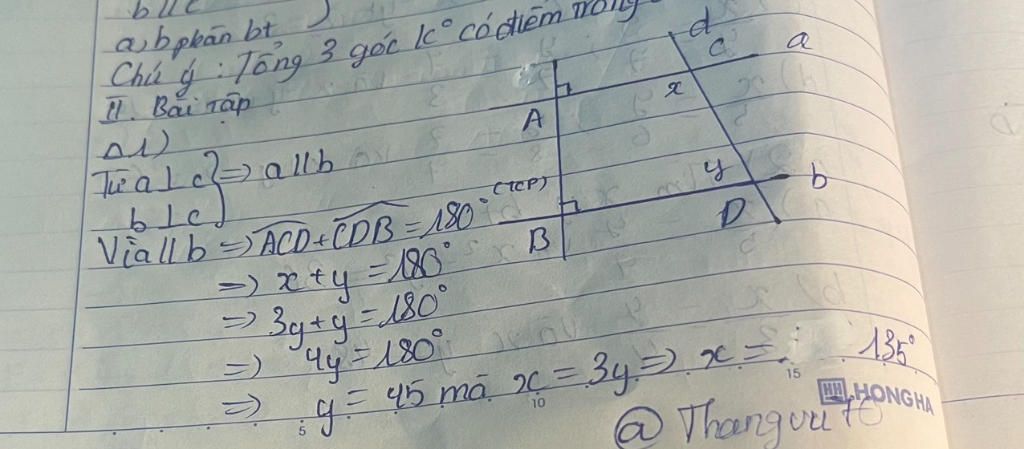 b // c
a, b phân bt
Chú ý: Tổng 3 góc k° có điểm trong
II. Bài tập
Δ1)
Từ a ⊥ c } => a // b
b ⊥ c
Vì a // b => ACD + CDB = 180° (TCP)
=> x + y = 180°
=> 3y + y = 180°
=> 4y = 180°
=> y = 45 mà x = 3y => x = 135°
d
C
a
x
A
y
b
B
D
5
10
15
HH HONG HA
@ Thangvu76